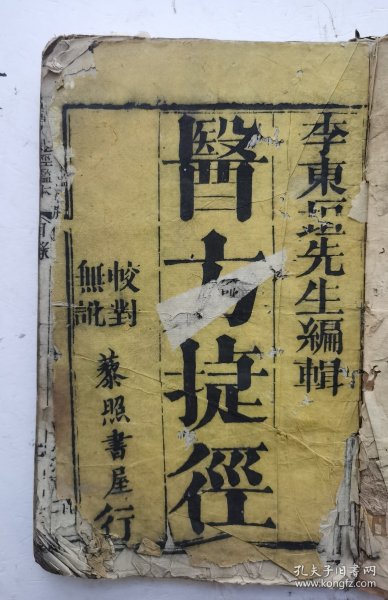 李東垣先生編輯
醫方捷徑
校對
無訛
藜照書屋行
孔夫子旧书网
www.kongfz.com